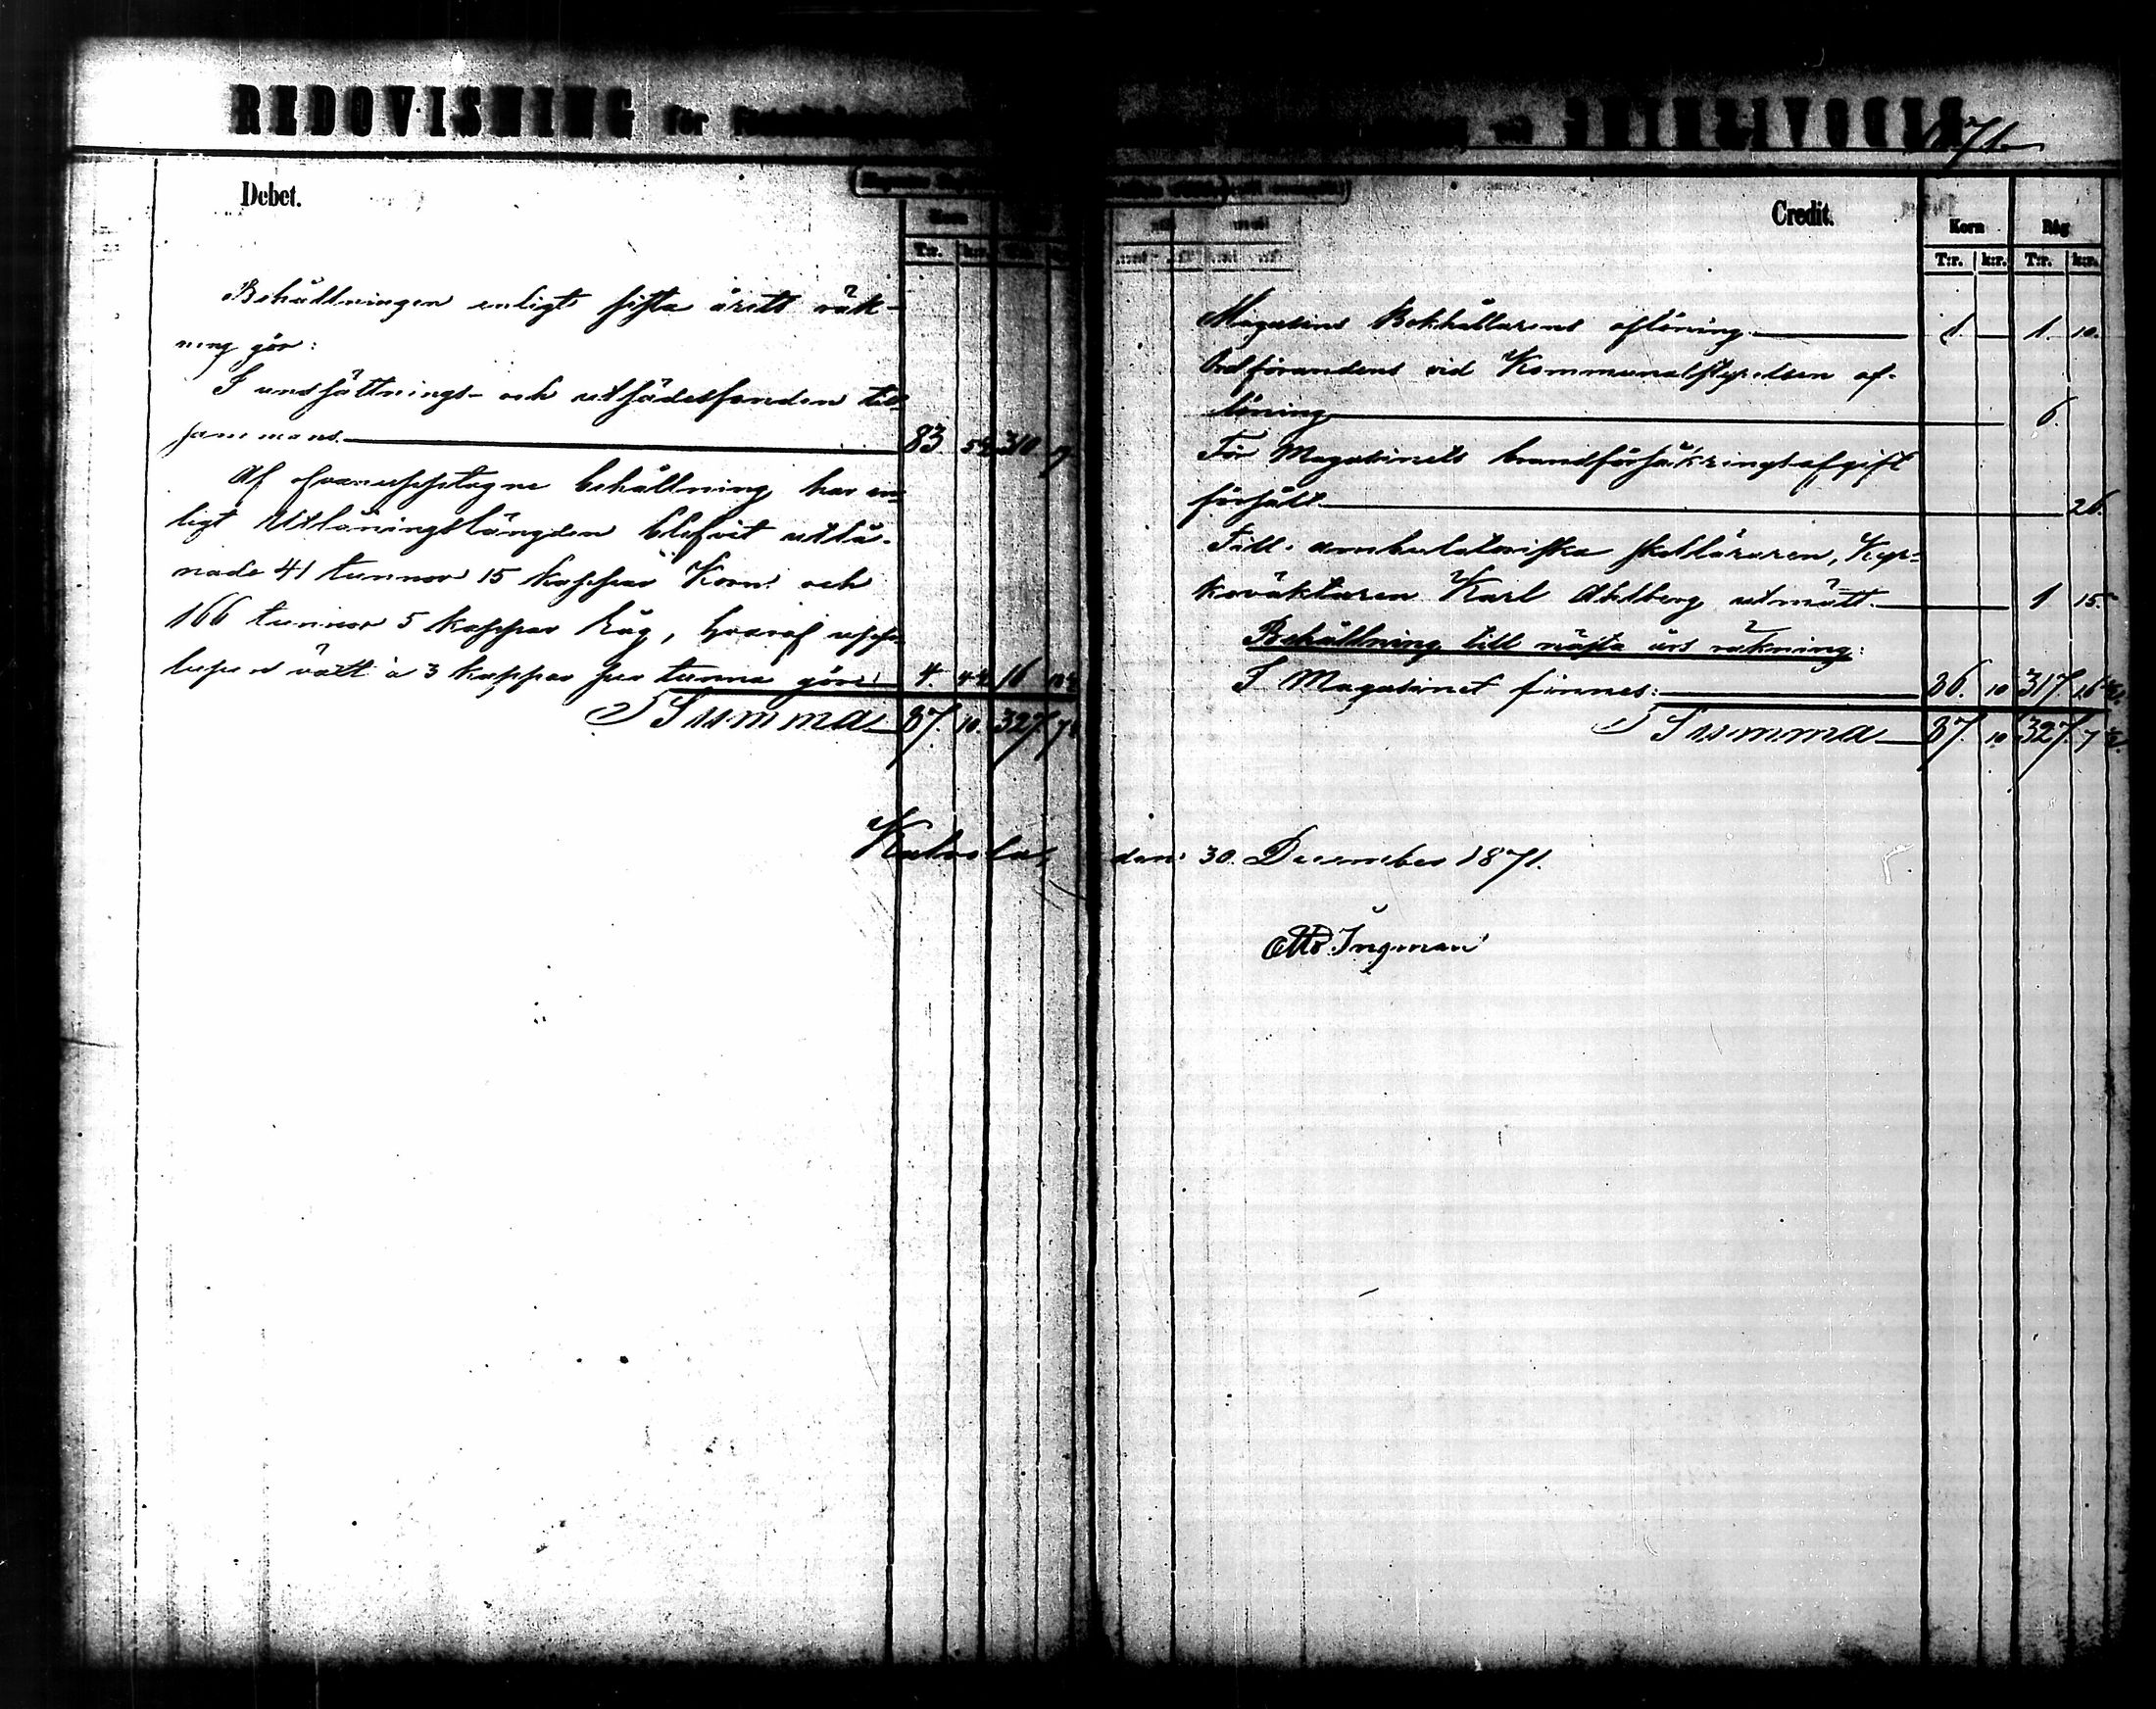 REDOVISNING för
1871.
Debet.
Korn
T:r. k:r.
Behållningen enligt sista årets räk-
ning gör:
I undsättnings- och utsädesfonden till-
sammans. 83 5½ 310 9
Af ofvanupptagne behållning har en-
ligt Utlåningslängden blifvit utlå-
nade 41 tunnor 15 kappar Korn och
166 tunnor 5 kappar Råg, hvaraf upp-
lupen växt à 3 kappar per tunna gör: 4. 4½ 16
Summa 87. 10. 327. 7½
Credit.
Korn Råg
T:r. k:r. T:r. k:r.
Magasins Bokhållarens aflöning 1. — 1. 10.
Ordförandens vid Kommunalstyrelsen af-
löning 6.
För Magasinets brandförsäkringsafgift
försåldt 26.
Till ambulatoriska skolläraren, Kyr-
koväktaren Karl Ahlberg utmätt. 1 15.
Behållning till nästa års räkning:
I Magasinet finnes: 86. 10 317. 16½
Summa 87. 10 327. 7½
den 30. December 1871.
Otto Ingman